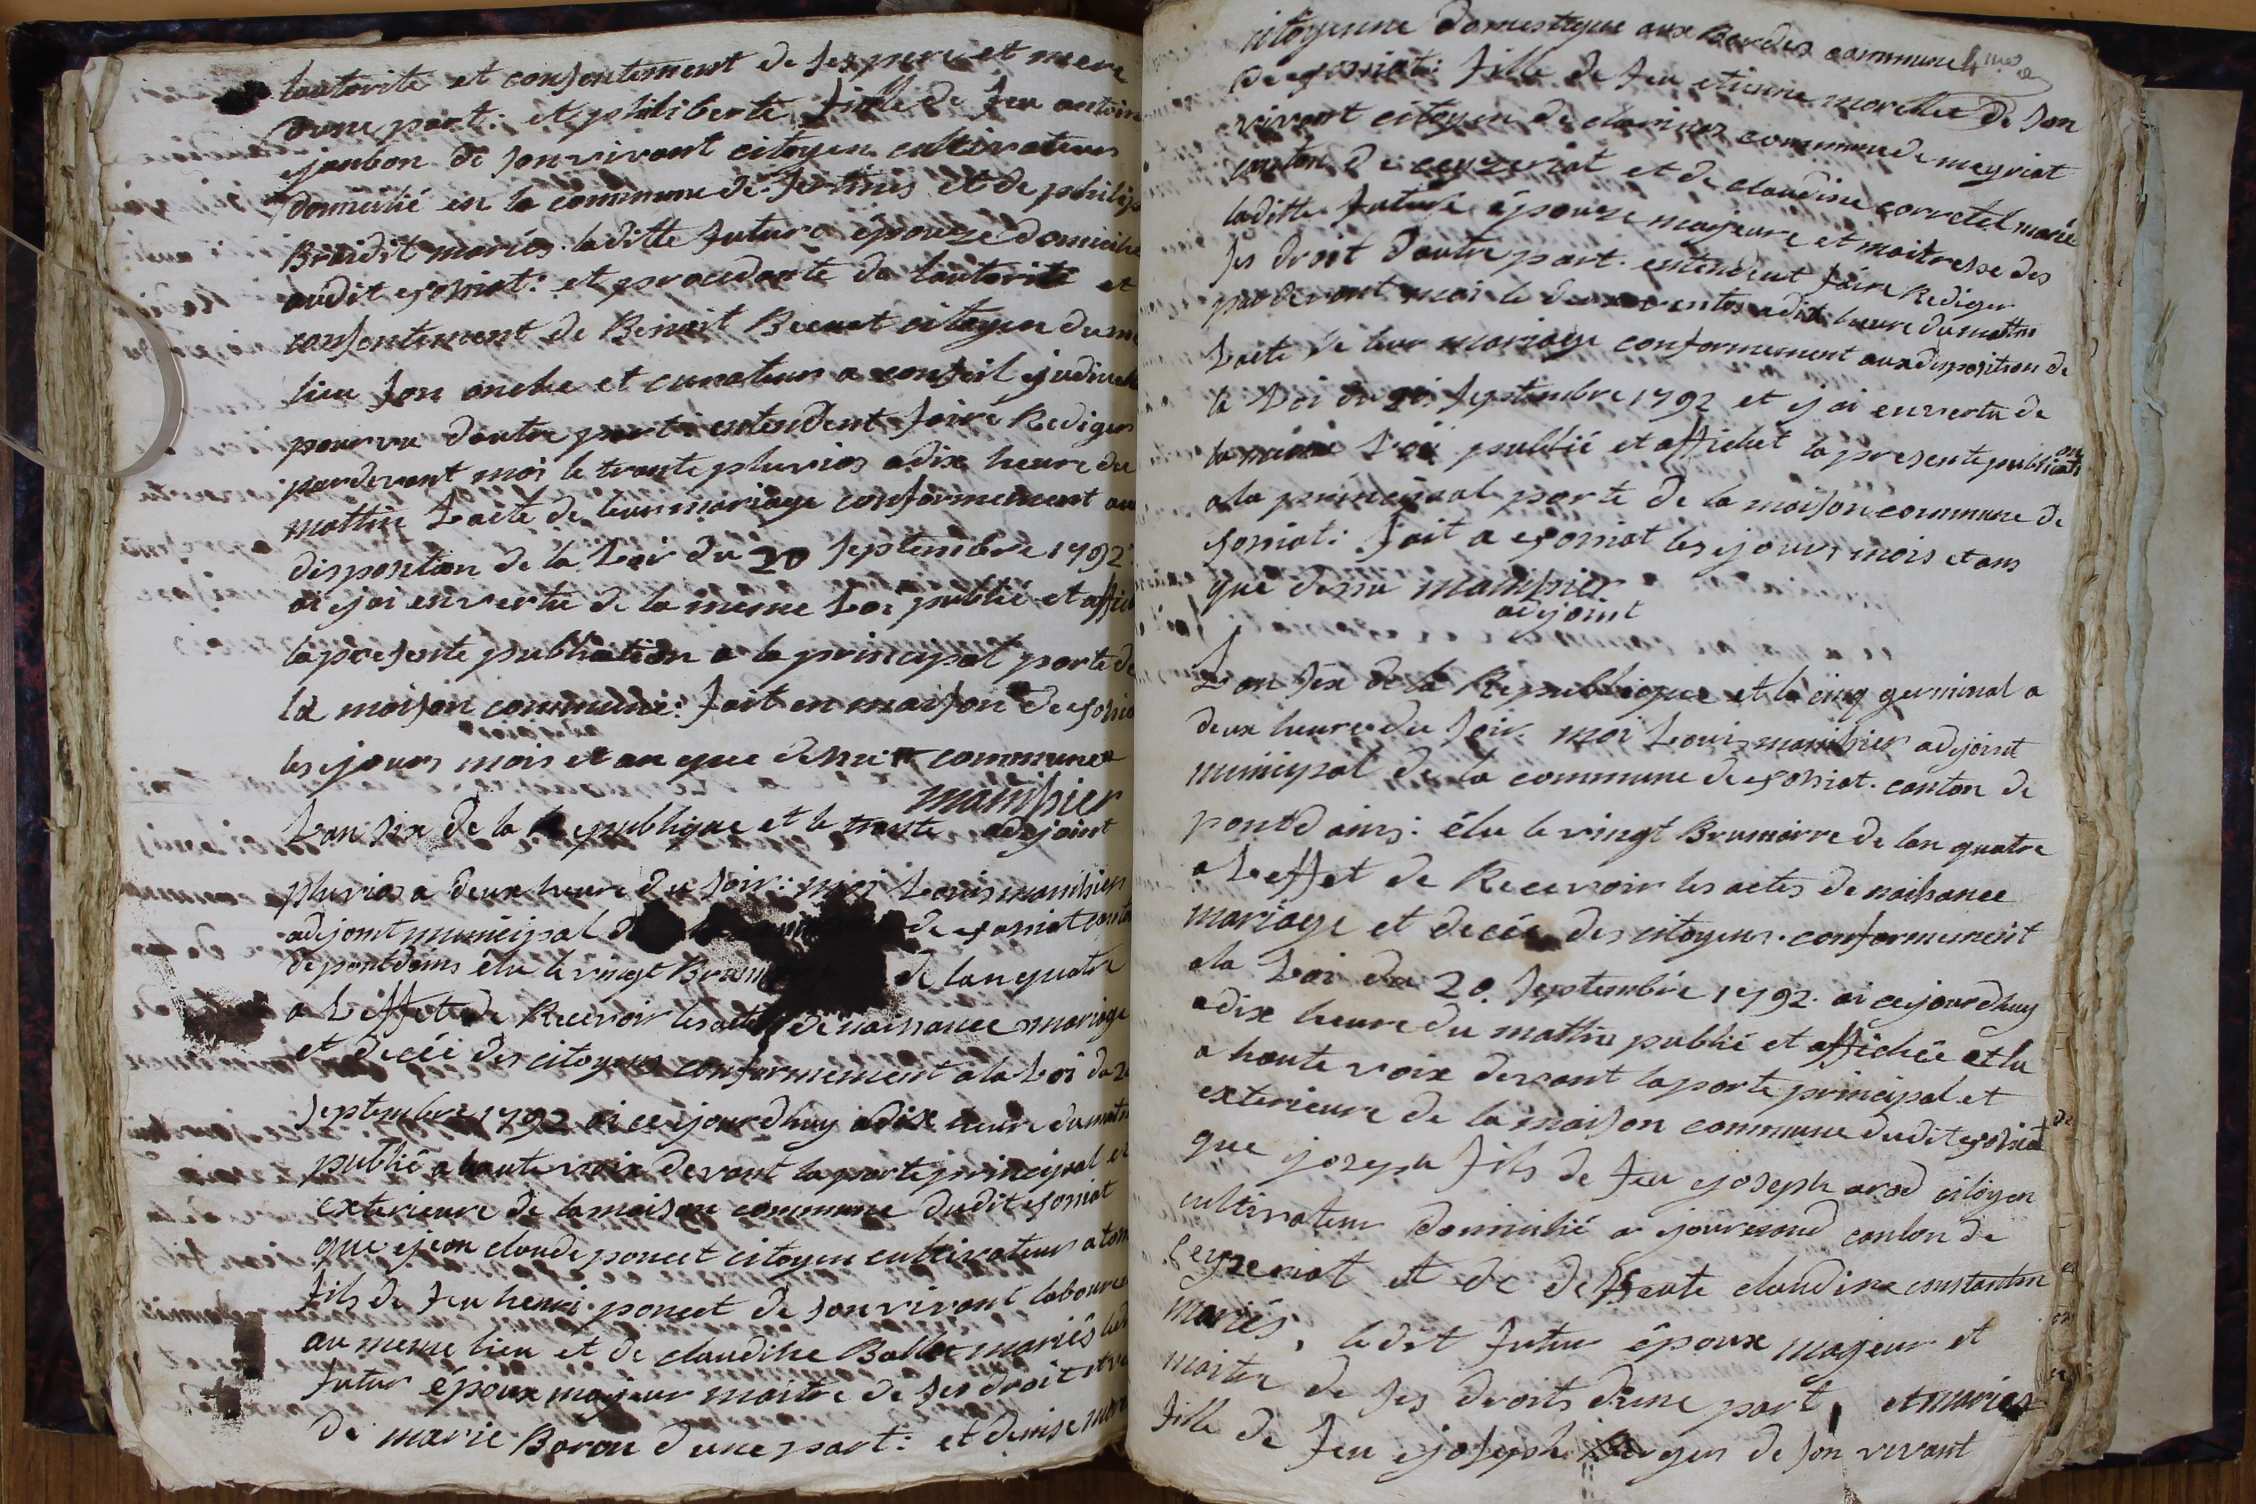 lautorite et consentement de ses pere et mere
dune part: et philiberte fille de feu antoin
joubon de son vivant citoyen cultivateur
domicilié en la commune de et de philip
mariés laditte future épouze domicilié
audit josniat: et procedante de lautorité et
consentement de Benoit citoyen du me
lieu son oncle et curateur a conseil judicielle
pourvu dautre part: entendent faire Rediger
pardevant moi le trante pluvios adix heure du
mattin Lacte de leur mariage conformement au
disposition de la Loi du 20 septembre 1792.
ai jai envertu de la meme Loi publié et affich
la presente publication a la principal porte de
la moison commune: fait en maison de josnia
les jours mois et an que dessus commune
mainssier
Lan six de la Republique et le trante adjoint
pluvios a deux heure du soir: moi Louis mainssier
adjoint municipal de josniat canto
de pontdains élu le vingt Brum de lan quatre
a Leffet de Recevoir les actes de naissance mariage
et decéé des citoyens conformement a la Loi du 20
septembre 1792 ai cejourdhuy adix heure du matin
publié a haute voix devant la porte principal et
exterieure de la maison commune dudit josniat
que jean claude poncet citoyen cultivateur
fils de feu henri poncet de son vivant laboure
au meme lieu et de claudine Ballet mariés led
futur époux majeur maitre de ses droit
de marie Baron dune part: et denise mor
citoyenne domestique aux Bordes commune
de josniat: fille de feu etienne morellet de son
vivant citoyen de commune de meyriat
canton de ceyzeriat et de claudine mariés
laditte future épouze majeure et maitresse des
ses droit dautre part. entendent faire Rediger
par devant moi le adix heure du mattin
Lacte de leur mariage conformement aux disposition de
la Loi du 20 septembre 1792 et jai envertu de
la meme Loi publié et affichet la presente publication
ala principal porte de la moison commune de
josniat: fait a josniat les jours mois et ans
que dessu mainssier
adjoint
Lan six de la Republique et le cinq germinal a
deux heure du soir. moi Louis mainssier adjoint
municipal de la commune de josniat. canton de
pontdains: élu le vingt Brumairre de lan quatre
a Leffet de Recevoir les actes de naissance
mariage et decéé des citoyens. conformement
ala Loi du 20. septembre 1792. ai cejourdhuy
adix heure du mattin publié et affichée et lu
a haute voix devant laporte principal et
exterieure de la maison commune dudit josniat
que joseph fils de feu joseph arod citoyen
cultivateur domicilié a journand canton de
Ceyzeriat et de deffeute claudine constantin
mariés, ledit futur époux majeur et
maitre de ses droits dune part, et marie
fille de feu joseph Berger de son vivant